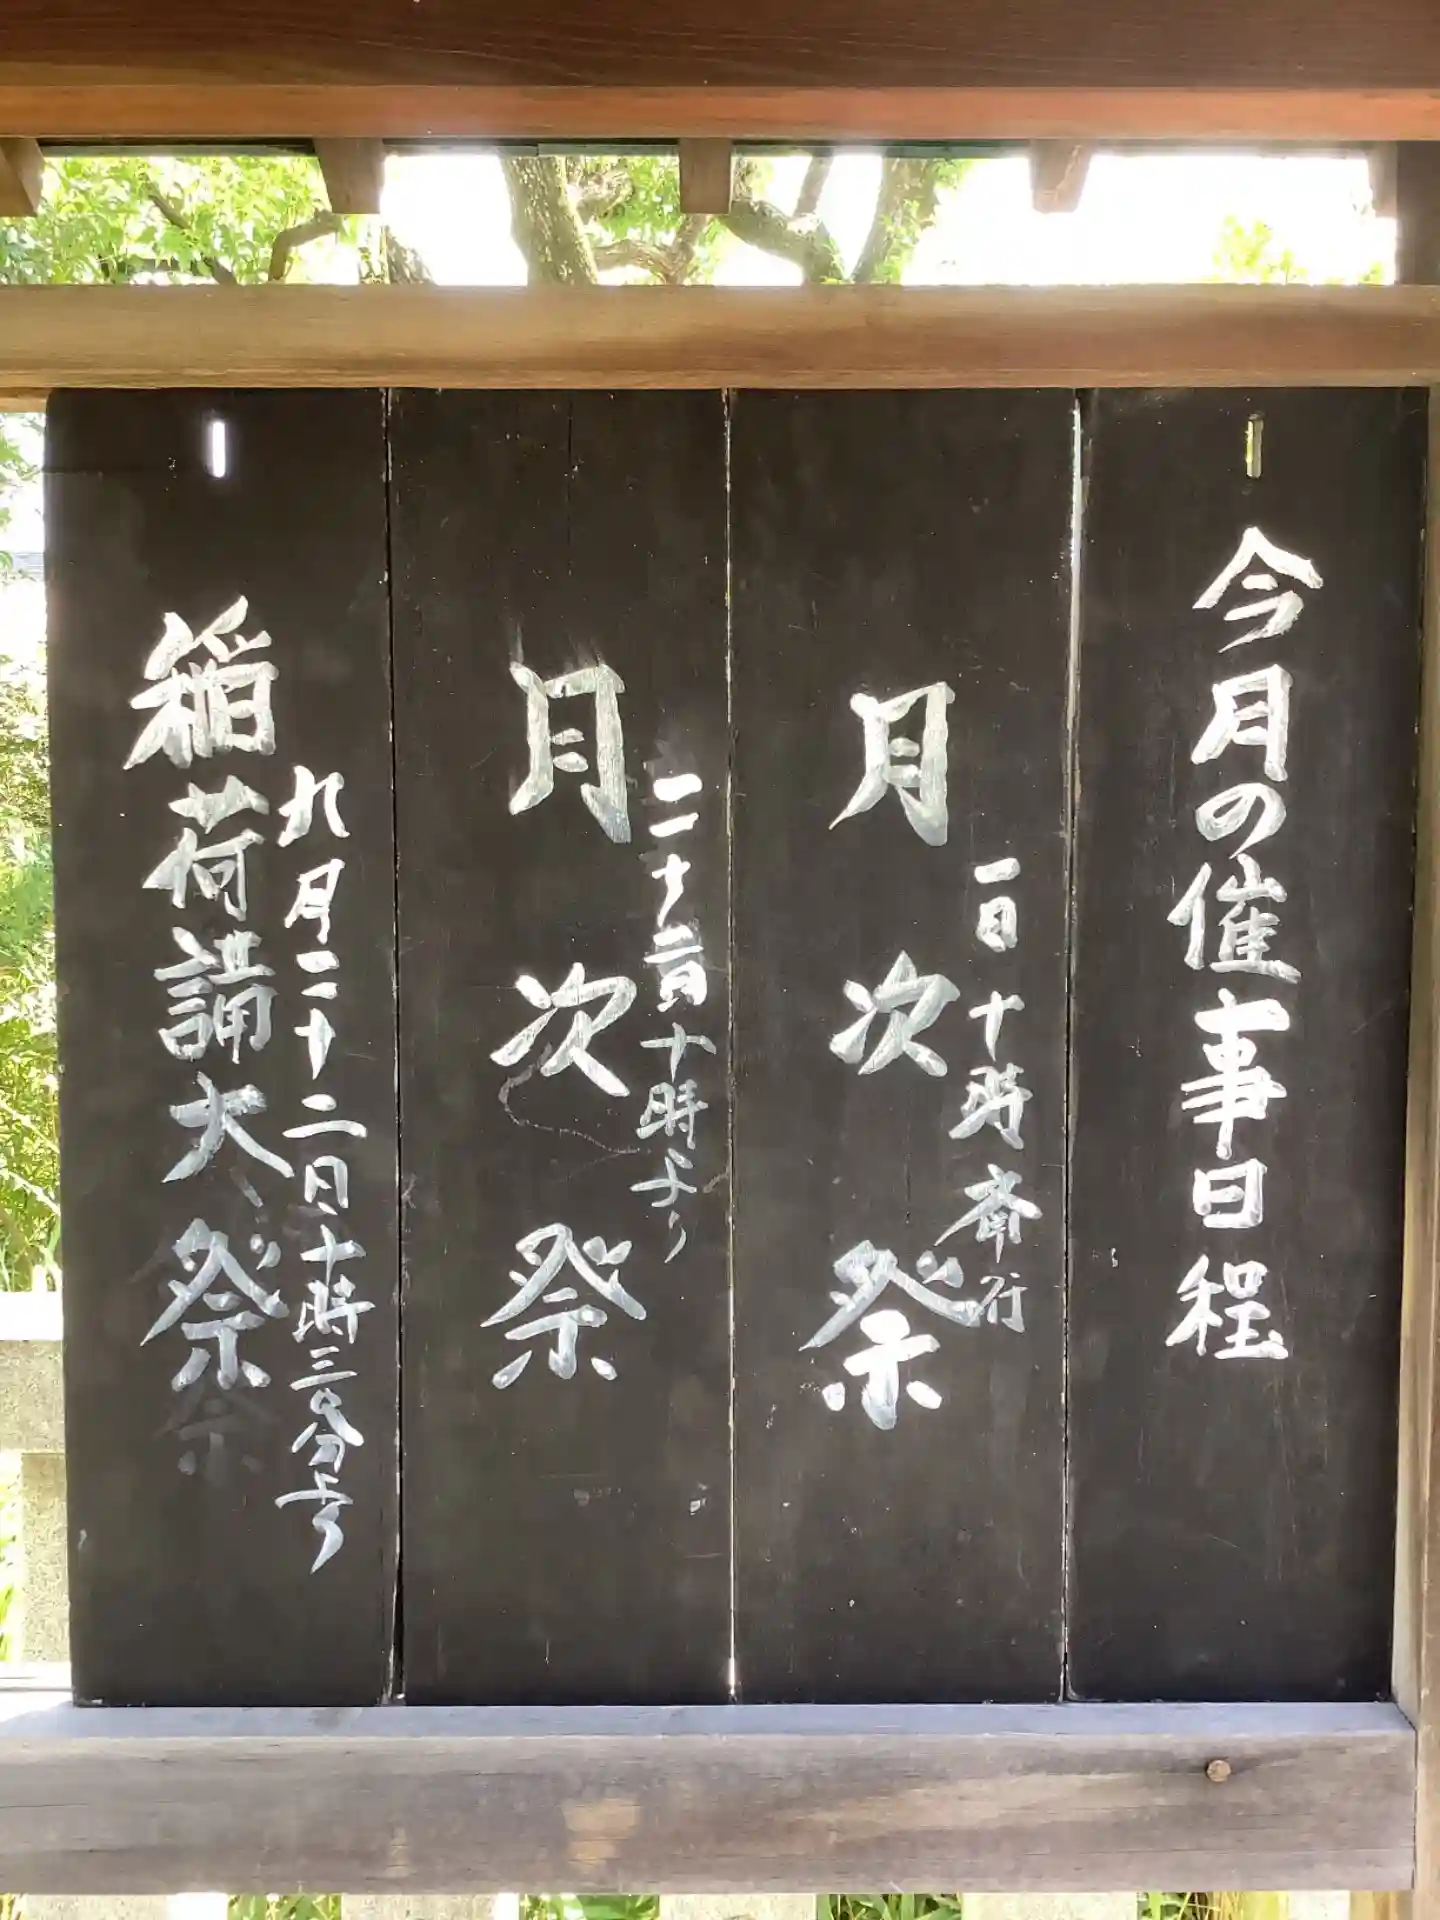 今月の催事日程
一日 十時斎行
月次祭
二十二日十時より
月次祭
九月二十二日十時三〇分より
稲荷講大祭